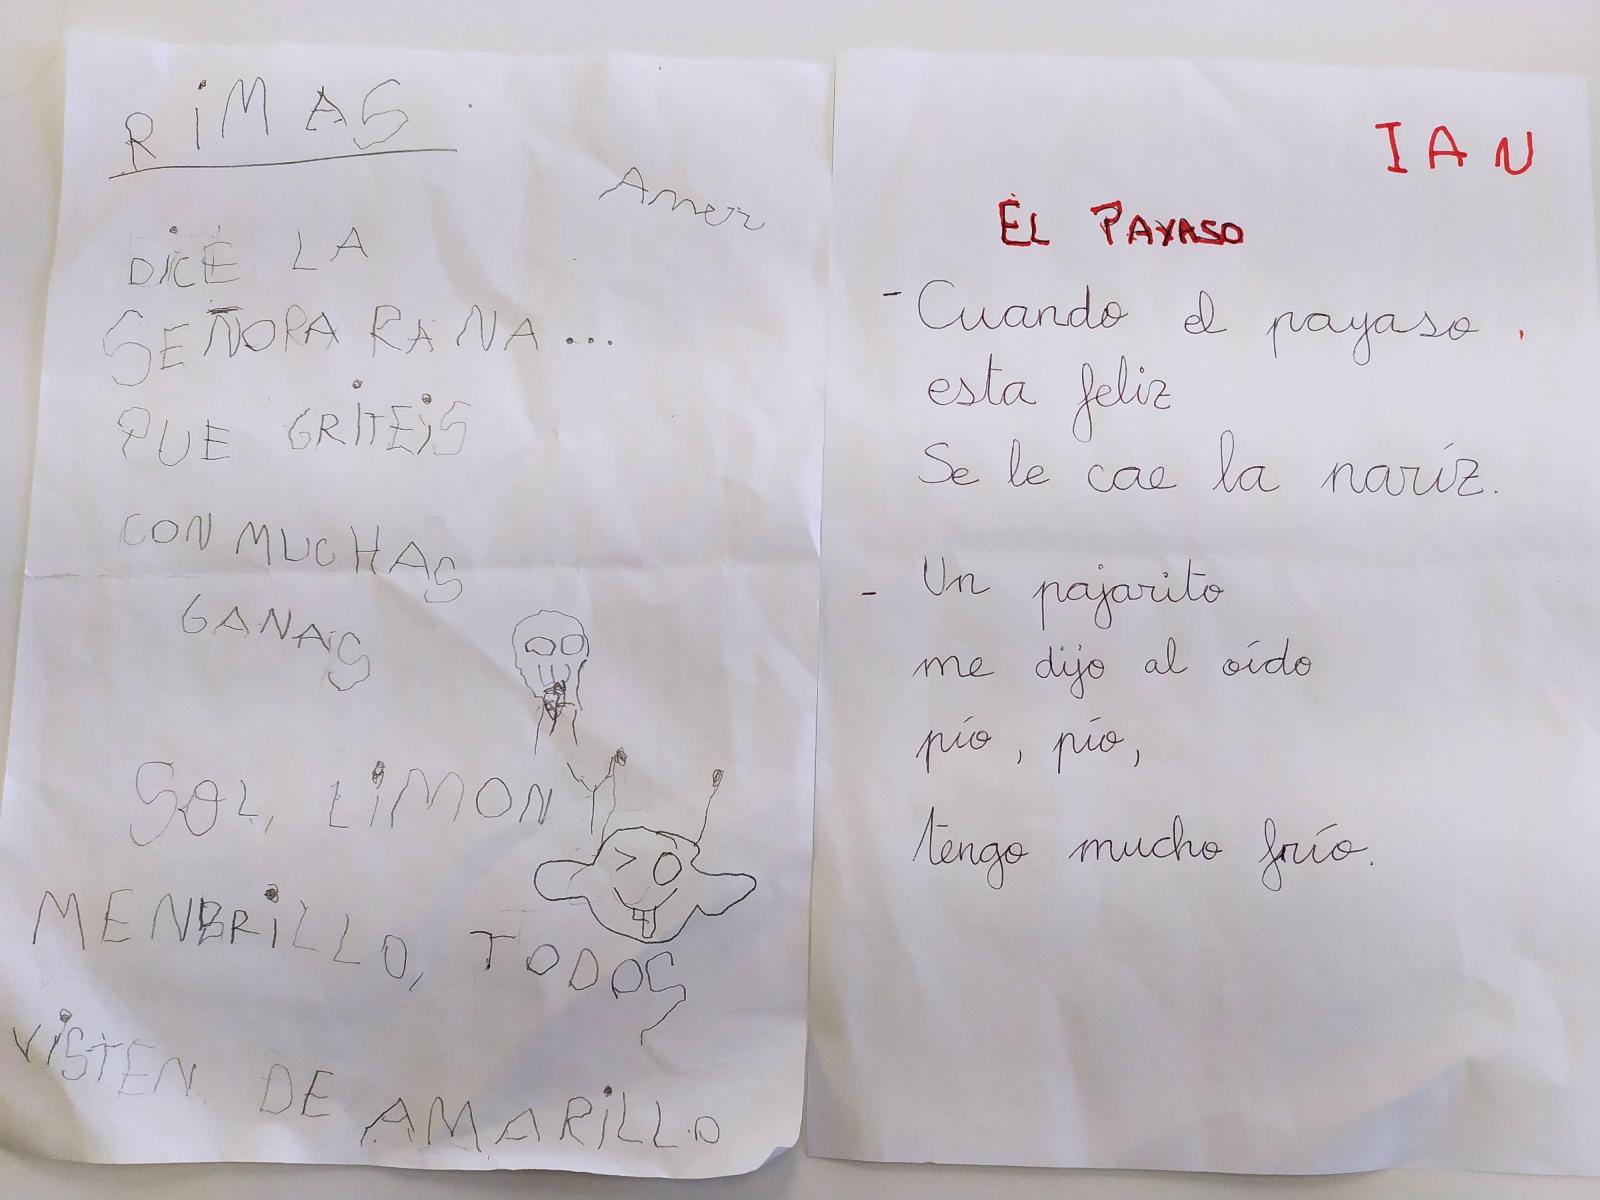 RiMAS
Amer
DiCE LA
SEÑORA RANA...
QUE GRiTEiS
CON MUCHAS
GANAS
SOL, LiMON Y
MENBRiLLO, TODOS
ViSTEN DE AMARiLLO
IAN
EL PAYASO
- Cuando el payaso
esta feliz
Se le cae la naríz.
- Un pajarito
me dijo al oído
pío, pío,
tengo mucho frío.